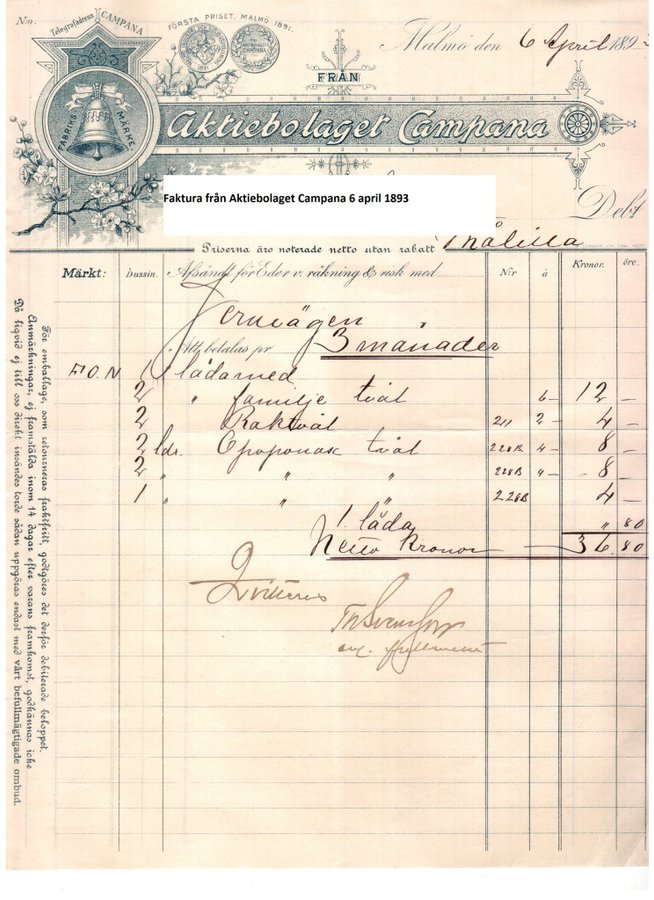 N:o.
Telegrafadress CAMPANA
FÖRSTA PRISET, MALMÖ 1891.
Malmö den 6 April 189
FRÅN
FABRIKS MÄRKE
Aktiebolaget Campana
Faktura från Aktiebolaget Campana 6 april 1893
Debt
Priserna äro noterade netto utan rabatt
Märkt: Dussin. Afsändt för Eder v. räkning & risk med N:r à Kronor. öre.
Jernvägen
Att betalas pr 3 månader
1 låda med
2 " familje tvål 6 – 12 –
2 Raktvål 211 2 – 4 –
2 ldr. Opoponax tvål 228B 4 – 8 –
2 " " " 228B 4 – 8 –
1 " " " 228B 4 –
1 låda " 80
Netto Kronor 36.80
Qvitteras
För emballage, som retourneras fraktfritt, godtgöres det derför debiterade beloppet.
Anmärkningar, ej framstälda inom 14 dagar efter varans framkomst, godkännas icke
Då liqvid ej till oss direkt insändes torde sådan uppgöras endast med vårt befullmägtigade ombud.